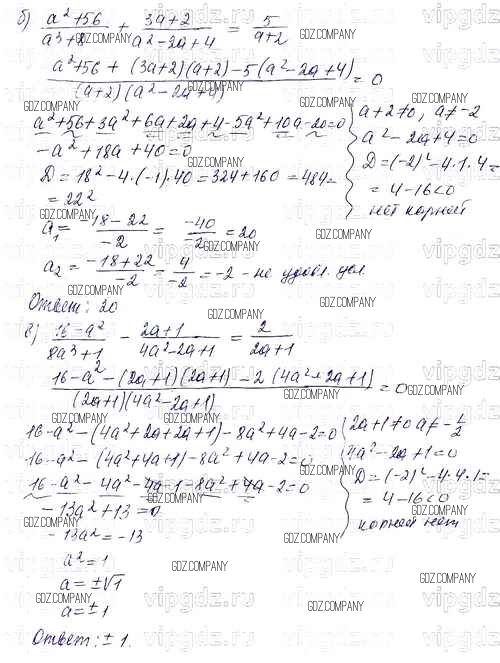 б) (a²+56)/(a³+8) + (3a+2)/(a²-2a+4) = 5/(a+2)
(a²+56 + (3a+2)(a+2) - 5(a²-2a+4))/((a+2)(a²-2a+4)) = 0
a²+56+3a²+6a+2a+4-5a²+10a-20=0
-a²+18a+40=0
D=18²-4·(-1)·40=324+160=484=
=22²
a₁= (-18-22)/-2 = -40/-2 = 20
a₂= (-18+22)/-2 = 4/-2 = -2 - не удовл. усл.
a+2≠0, a≠-2
a²-2a+4=0
D=(-2)²-4·1·4=
=4-16<0
нет корней
Ответ: 20
в) (16-a²)/(8a³+1) - (2a+1)/(4a²-2a+1) = 2/(2a+1)
(16-a²-(2a+1)(2a+1)-2(4a²-2a+1))/((2a+1)(4a²-2a+1)) = 0
16-a²-(4a²+2a+2a+1)-8a²+4a-2=0
16-a²-(4a²+4a+1)-8a²+4a-2=0
16-a²-4a²-4a-1-8a²+4a-2=0
-13a²+13=0
-13a²=-13
a²=1
a=±√1
a=±1
2a+1≠0 a≠-1/2
4a²-2a+1=0
D=(-2)²-4·4·1=
=4-16<0
корней нет
Ответ: ±1.
GDZ.COMPANY
vipgdz.ru